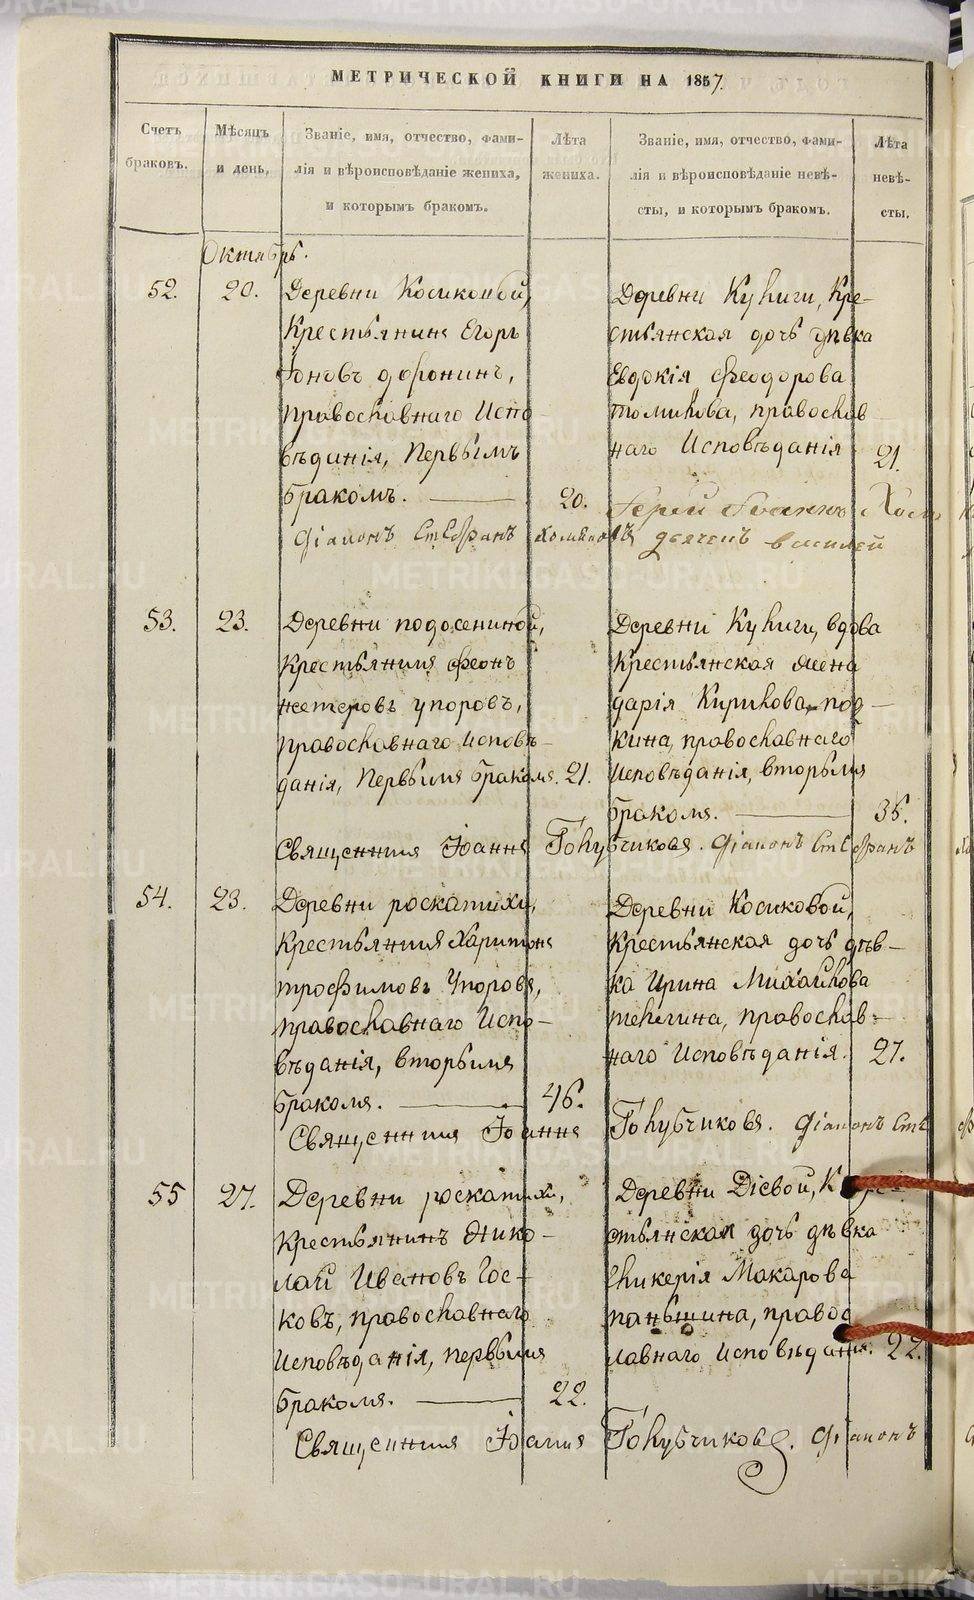 МЕТРИЧЕСКОЙ КНИГИ НА 1857.
Счетъ
браковъ.
Мѣсяцъ
и день.
Званіе, имя, отчество, фами-
лія и вѣроисповѣданіе жениха,
и которымъ бракомъ.
Лѣта
жениха.
Званіе, имя, отчество, фами-
лія и вѣроисповѣданіе невѣ-
сты, и которымъ бракомъ.
Лѣта
невѣ-
сты.
Октябрь.
52.
20.
Деревни Косиковой,
Крестьянинъ Егоръ
Іоновъ Афонинъ,
православнаго Испо-
вѣданія, Первымъ
бракомъ.
20.
Деревни Кулиги, Кре-
стьянская дочь дѣвка
Евдокія Феодорова
Томилова, православ
наго Исповѣданія
21.
Іерей Іоаннъ
Діаконъ Стефанъ Хомяковъ дьячекъ Василей
53.
23.
Деревни подосениной,
Крестьянинъ Феонъ
петровъ упоровъ,
православнаго исповѣ-
данія, Первымъ бракомъ.
21.
Деревни Кулиги, вдова
Крестьянская жена
дарія Кирилова, под-
кина, православнаго
исповѣданія, вторымъ
бракомъ.
35.
Священникъ Іоаннъ Голубчиковъ. Діаконъ Стефанъ
54.
23.
Деревни роскатихи,
Крестьянинъ Харитонъ
трофимовъ Упоровъ,
православнаго Испо-
вѣданія, вторымъ
бракомъ.
46.
Деревни Косиковой,
Крестьянская дочь дѣв-
ка Ирина Михайлова
телегина, православ-
наго Исповѣданія.
27.
Священникъ Іоаннъ Голубчиковъ. Діаконъ Сте
55
27.
Деревни роскатихи,
Крестьянинъ Нико-
лай Ивановъ Гос-
ковъ, православнаго
Исповѣданія, первымъ
бракомъ.
22.
Деревни Діевой, Кре-
стьянская дочь дѣвка
Гликерія Макарова
паньшина, правос
лавнаго исповѣданія.
22.
Священникъ Іоаннъ Голубчиковъ. Діаконъ
METRIKI.GASO-URAL.RU